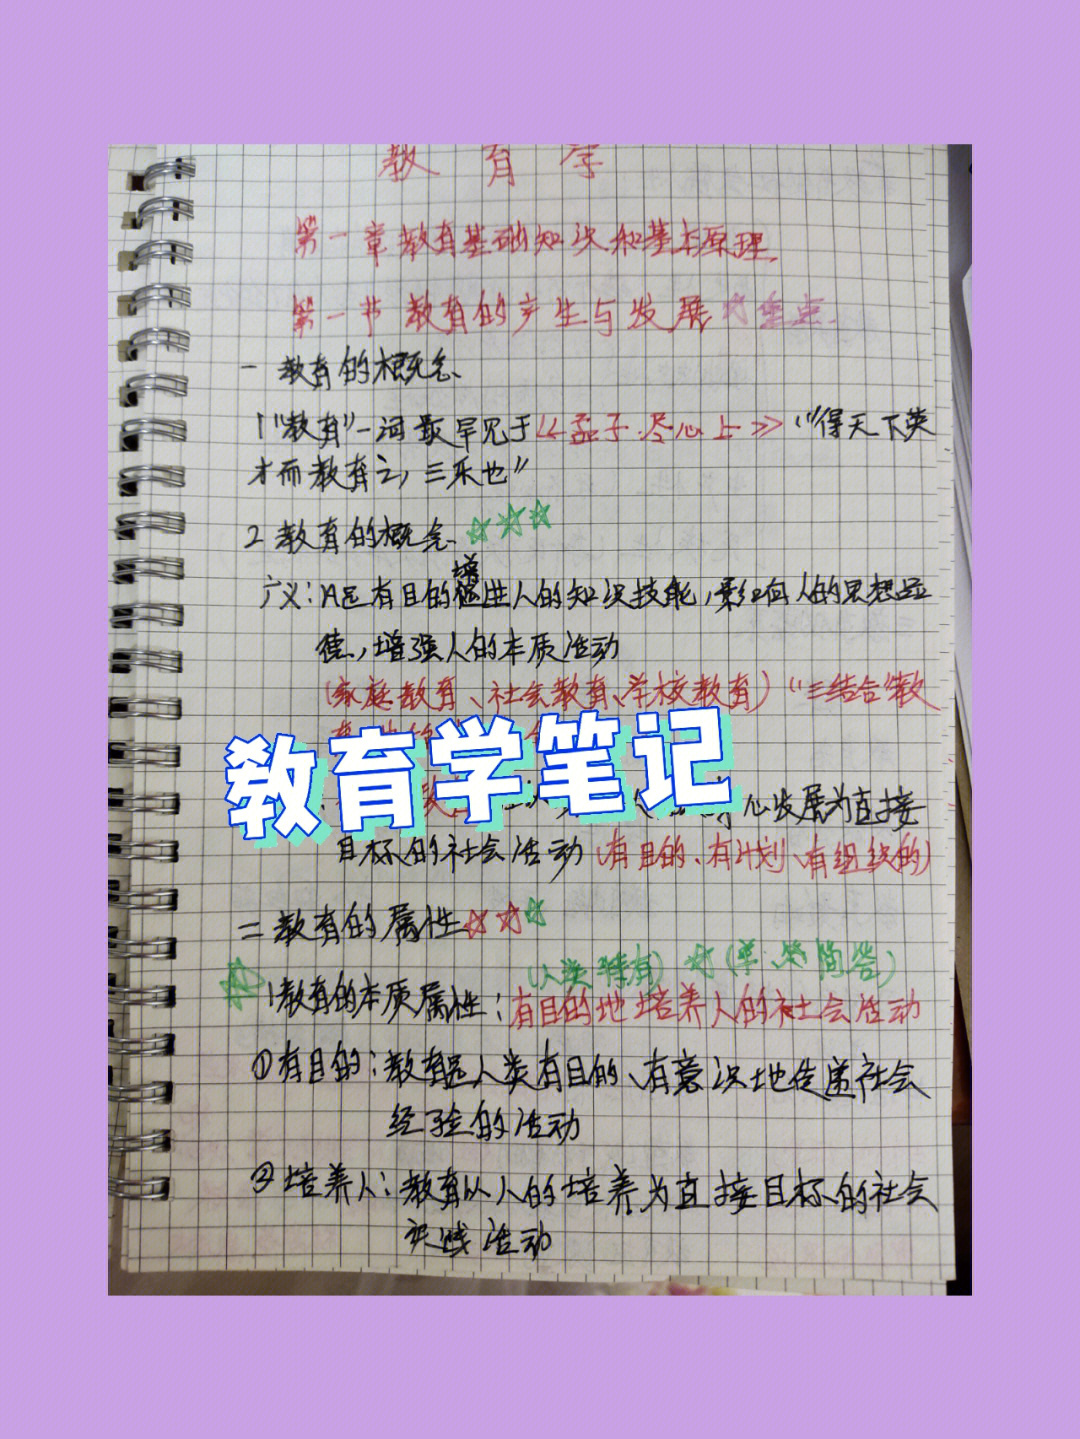 教育学
第一章教育基础知识和基本原理
第一节教育的产生与发展☆重点
一 教育的概念
1 "教育"一词最早见于《孟子·尽心上》"得天下英
才而教育之,三乐也"
2 教育的概念☆☆☆
增
广义:凡是有目的促进人的知识技能,影响人的思想品
德,增强人的本质活动
(家庭教育、社会教育、学校教育)"三结合"教
教育学笔记
心发展为直接
目标的社会活动(有目的、有计划、有组织的)
二 教育的属性☆☆☆
(人类特有)☆(单、简答)
1教育的本质属性:有目的地培养人的社会活动
①有目的:教育是人类有目的、有意识地传递社会
经验的活动
②培养人:教育以人的培养为直接目标的社会
实践活动